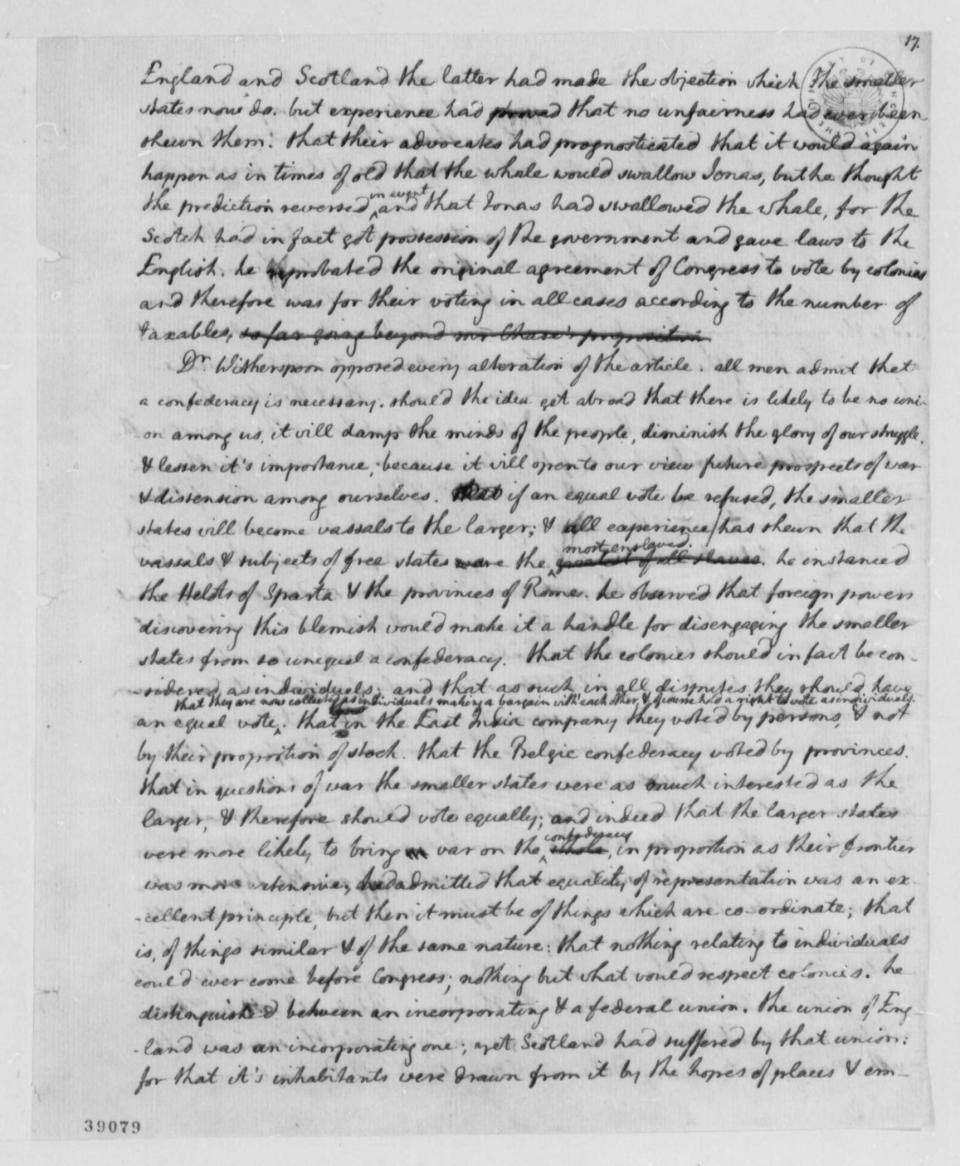 17.
England and Scotland the latter had made the objection which the smaller
states now do. but experience had proved that no unfairness had ever been
shewn them: that their advocates had prognosticated that it would again
happen as in times of old that the whale would swallow Jonas, but he thought
the prediction reversed in event and that Jonas had swallowed the whale, for the
Scotch had in fact got possession of the government and gave laws to the
English. he reprobated the original agreement of Congress to vote by colonies
and therefore was for their voting in all cases according to the number of
taxables, so far going beyond mr Chase's proposition.
Dr. Witherspoon opposed every alteration of the article. all men admit that
a confederacy is necessary. should the idea get abroad that there is likely to be no uni-
-on among us, it will damp the minds of the people, diminish the glory of our struggle,
& lessen it's importance, because it will open to our view future prospects of war
& dissension among ourselves. that if an equal vote be refused, the smaller
states will become vassals to the larger; & all experience has shewn that the
vassals & subjects of free states are the
most enslaved.
of all slaves. he instanced
the Helots of Sparta & the provinces of Rome. he observed that foreign powers
discovering this blemish would make it a handle for disengaging the smaller
states from so unequal a confederacy. that the colonies should in fact be con-
-sidered as individuals; and that as such in all disputes they should have
that they are now collected as individuals making a bargain with each other, & of course had a right to vote as individuals.
an equal vote. that in the East India company they voted by persons, & not
by their proportion of stock. that the Belgic confederacy voted by provinces.
that in questions of war the smaller states were as much interested as the
larger, & therefore should vote equally; and indeed that the larger states
were more likely to bring war on the confederacy whole, in proportion as their frontier
was more extensive. he admitted that equality of representation was an ex-
-cellent principle, but then it must be of things which are co-ordinate; that
is, of things similar & of the same nature: that nothing relating to individuals
could ever come before Congress; nothing but what would respect colonies. he
distinguished between an incorporating & a federal union. the union of Eng-
-land was an incorporating one; yet Scotland had suffered by that union:
for that it's inhabitants were drawn from it by the hopes of places & em-
39079